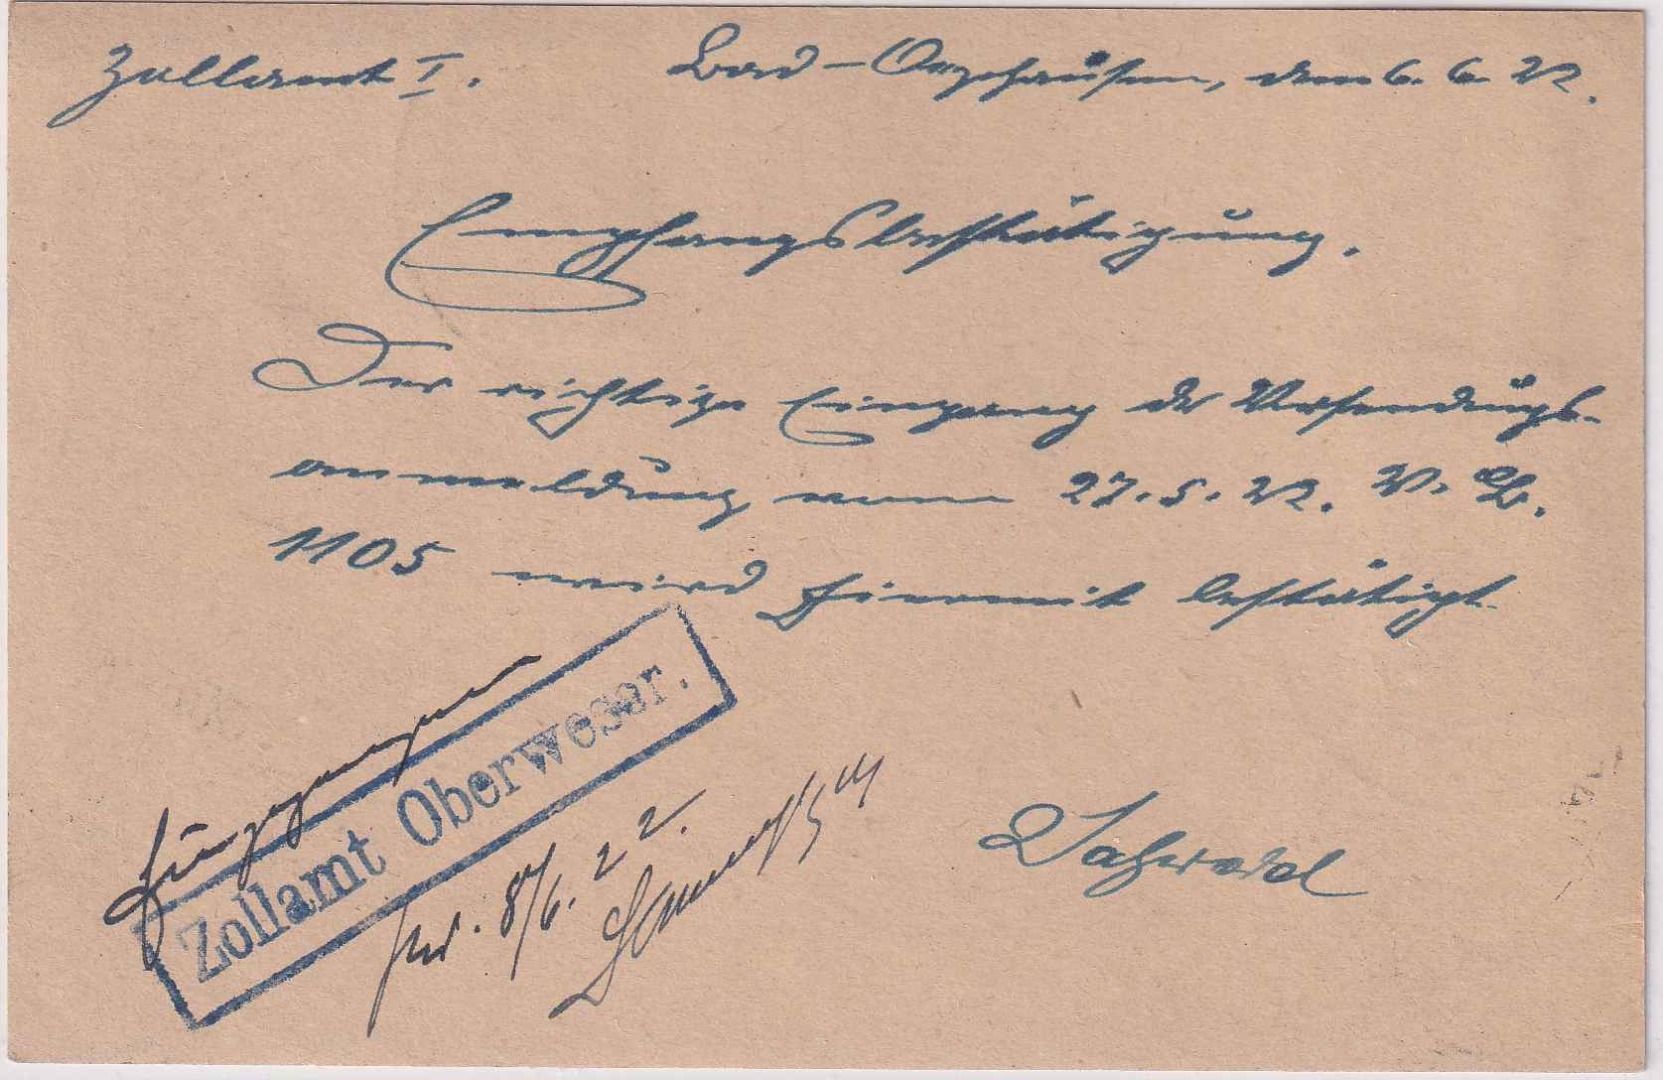 Zollamt I. Bad-Oeynhausen, den 6. 6. 22.
Empfangsbestätigung.
Der richtige Eingang der Versendungs-
anmeldung vom 27. 5. 22. V. B.
1105 wird hiermit bestätigt.
Eingegangen
Zollamt Oberweser.
8/6. 22.